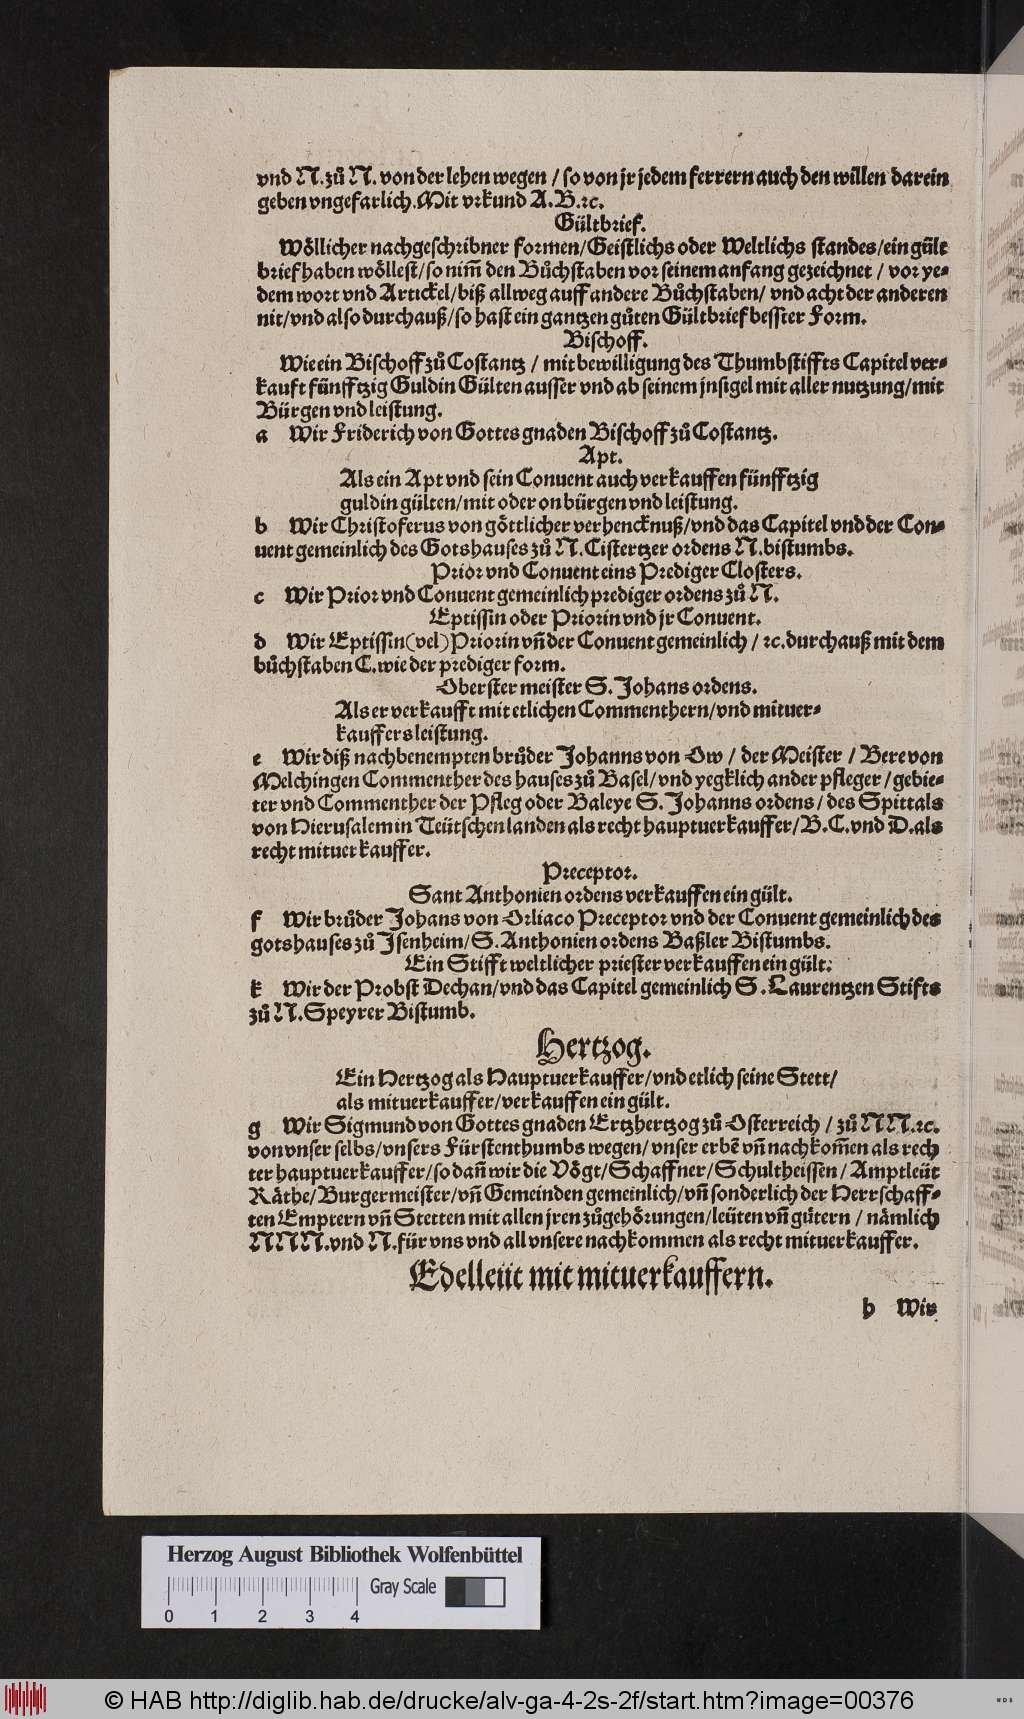 vnd N. zuͦ N. von der lehen wegen / so von jr jedem ferrern auch den willen darein
geben vngefarlich. Mit vrkund A. B. ꝛc.
Gültbrief.
Woͤllicher nachgeschribner formen/Geistlichs oder Weltlichs standes/ein gült
brief haben woͤllest/so nim̃ den Buͦchstaben vor seinem anfang gezeichnet / vor ye⸗
dem wort vnd Artickel/biß allweg auff andere Buͦchstaben/ vnd acht der anderen
nit/vnd also durchauß/so hast ein gantzen guͦten Gültbrief besster Form.
Bischoff.
Wie ein Bischoff zuͦ Costantz / mit bewilligung des Thumbstiffts Capitel ver⸗
kauft fünfftzig Guldin Gülten ausser vnd ab seinem jnsigel mit aller nutzung/mit
Bürgen vnd leistung.
a Wir Friderich von Gottes gnaden Bischoff zuͦ Costantz.
Apt.
Als ein Apt vnd sein Conuent auch verkauffen fünfftzig
guldin gülten/mit oder on bürgen vnd leistung.
b Wir Christoferus von goͤttlicher verhencknuß/vnd das Capitel vnd der Con⸗
uent gemeinlich des Gotshauses zuͦ N. Cistertzer ordens N. bistumbs.
Prior vnd Conuent eins Prediger Closters.
c Wir Prior vnd Conuent gemeinlich prediger ordens zuͦ N.
Eptissin oder Priorin vnd jr Conuent.
d Wir Eptissin (vel) Priorin vñ der Conuent gemeinlich / ꝛc. durchauß mit dem
buͦchstaben C. wie der prediger form.
Oberster meister S. Johans ordens.
Als er verkaufft mit etlichen Commenthern/vnd mituer⸗
kauffers leistung.
e Wir diß nachbenempten bruͤder Johanns von Ow / der Meister / Bere von
Melchingen Commenther des hauses zuͦ Basel/vnd yegklich ander pfleger / gebie⸗
ter vnd Commenther der Pfleg oder Baleye S. Johanns ordens / des Spittals
von Hierusalem in Teütschen landen als recht hauptuerkauffer/B. C. vnd D. als
recht mituerkauffer.
Preceptor.
Sant Anthonien ordens verkauffen ein gült.
f Wir bruͦder Johans von Orliaco Preceptor vnd der Conuent gemeinlich des
gotshauses zuͦ Jsenheim/S. Anthonien ordens Baßler Bistumbs.
Ein Stifft weltlicher priester verkauffen ein gült:
k Wir der Probst Dechan/vnd das Capitel gemeinlich S. Laurentzen Stifts
zuͦ N. Speyrer Bistumb.
Hertzog.
Ein Hertzog als Hauptuerkauffer/vnd etlich seine Stett/
als mituerkauffer/verkauffen ein gült.
g Wir Sigmund von Gottes gnaden Ertzhertzog zuͦ Osterreich / zuͦ N N. ꝛc.
von vnser selbs/vnsers Fürstenthumbs wegen/ vnser erbẽ vñ nachkom̃en als rech
ter hauptuerkauffer/so dañ wir die Voͤgt/Schaffner/Schultheissen / Amptleüt
Raͤthe/Burgermeister/vñ Gemeinden gemeinlich/vñ sonderlich der Herrschaff⸗
ten Emptern vñ Stetten mit allen jren zuͦgehoͤrungen/leüten vñ guͤtern / naͤmlich
N N N. vnd N. für vns vnd all vnsere nachkommen als recht mituerkauffer.
Edelleüt mit mituerkauffern.
h Wir
Herzog August Bibliothek Wolfenbüttel
Gray Scale
0 1 2 3 4
© HAB http://diglib.hab.de/drucke/alv-ga-4-2s-2f/start.htm?image=00376